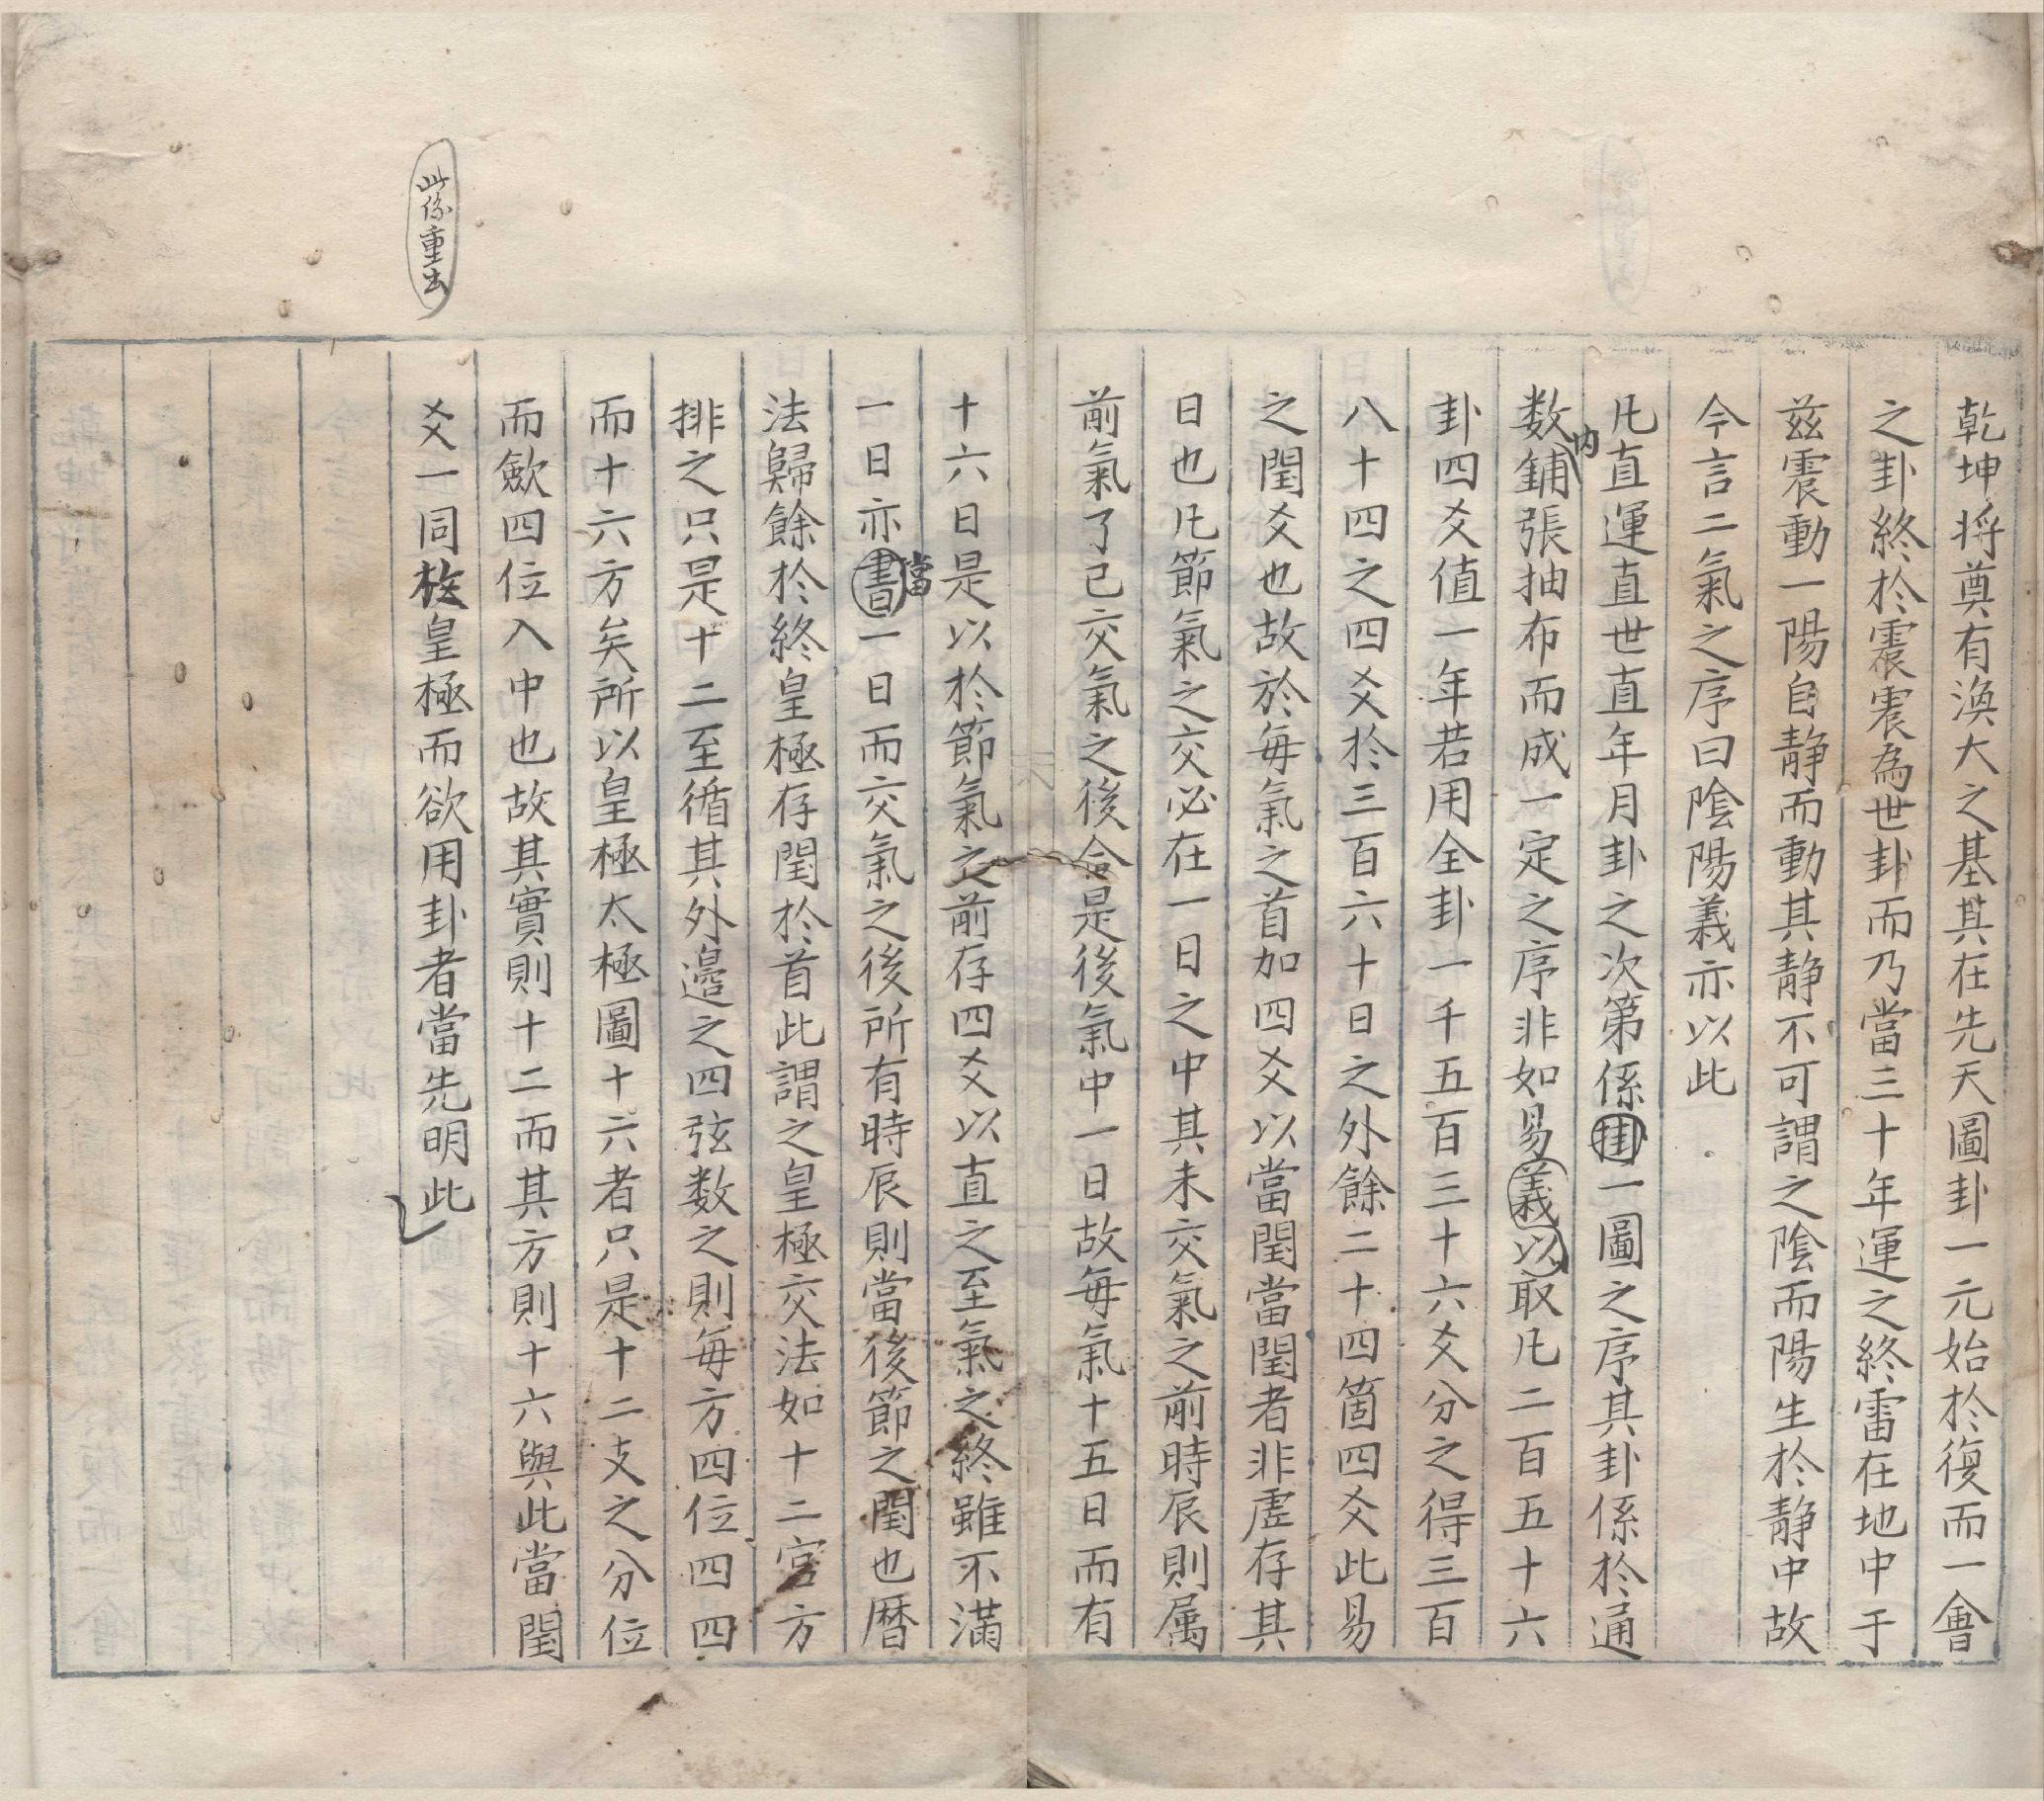 乾坤将奠有渙大之基其在先天圖卦一元始於復而一會
之卦終於震震為世卦而乃當三十年運之終雷在地中于
茲震動一陽自静而動其静不可謂之陰而陽生於静中故
今言二氣之序曰陰陽義亦以此
凡直運直世直年月卦之次第係掛一圖之序其卦係於通
数内鋪張抽布而成一定之序非如易義以取凡二百五十六
卦四爻值一年若用全卦一千五百三十六爻分之得三百
八十四之四爻於三百六十日之外餘二十四箇四爻此易
之閏爻也故於每氣之首加四爻以當閏當閏者非虚存其
日也凡節氣之交必在一日之中其未交氣之前時辰則属
前氣了已交氣之後仝是後氣中一日故每氣十五日而有
十六日是以於節氣之前存四爻以直之至氣之終雖不滿
一日亦書當一日而交氣之後所有時辰則當後節之閏也暦
法歸餘於終皇極存閏於首此謂之皇極交法如十二宮方
排之只是十二至循其外邊之四弦数之則每方四位四四
而十六方矣所以皇極太極圖十六者只是十二支之分位
而歛四位入中也故其實則十二而其方則十六與此當閏
爻一同於皇極而欲用卦者當先明此
此係重出